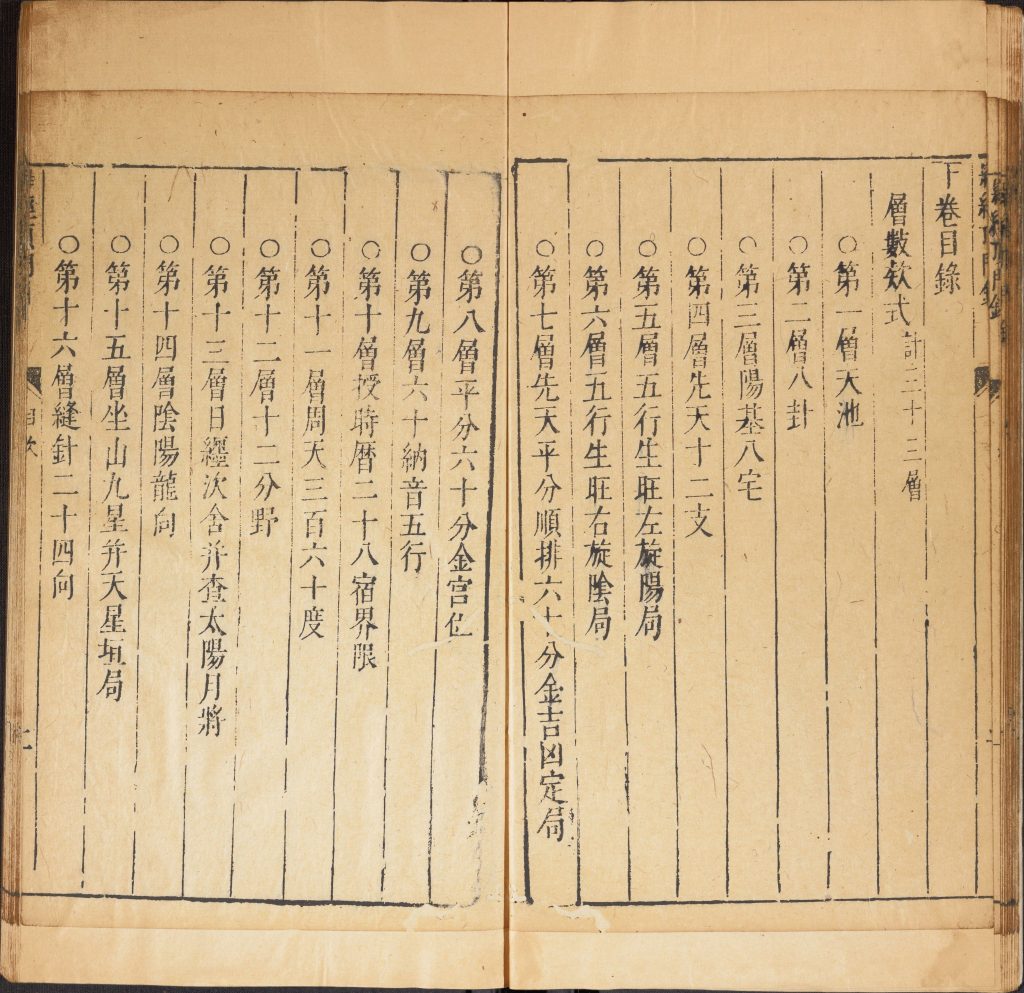 下卷目錄
層數款式計三十三層
○第一層天池
○第二層八卦
○第三層陽基八宅
○第四層先天十二支
○第五層五行生旺左旋陽局
○第六層五行生旺右旋陰局
○第七層先天平分順排六十分金吉凶定局
○第八層平分六十分金宮位
○第九層六十納音五行
○第十層授時曆二十八宿界限
○第十一層周天三百六十度
○第十二層十二分野
○第十三層日纏次舍并查太陽月將
○第十四層陰陽龍向
○第十五層坐山九星并天星垣局
○第十六層縫針二十四向
目次